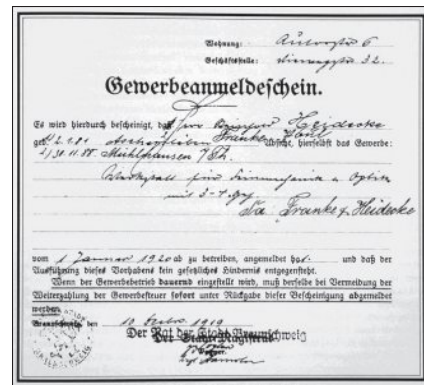 Wohnung: 6
Geschäftsstelle: 32.
Gewerbeanmeldeschein.
Es wird hierdurch bescheinigt, daß Herr Reinhold Heidecke
geb. 2.1.81 Aschersleben Franke, Paul
Mühlhausen i/Th. hierselbst das Gewerbe:
Werkstatt für Feinmechanik u Optik
mit
Fa Franke & Heidecke
vom 1 Januar 1920 ab zu betreiben, angemeldet hat. und daß der
Ausführung dieses Vorhabens kein gesetzliches Hindernis entgegensteht.
Wenn der Gewerbebetrieb dauernd eingestellt wird, muß derselbe bei Vermeidung der
Weiterzahlung der Gewerbesteuer sofort unter Rückgabe dieser Bescheinigung abgemeldet
werden.
Braunschweig, den 10 1919
Der Rat der Stadt Braunschweig
Der Stadtmagistrat